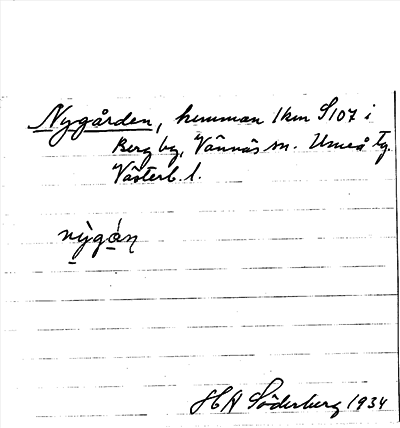 Nygården, hemman 1 km S 107 i
Berg by, Vännäs sn. Umeå Tg.
Västerb. l.
nỳgán
H A Söderberg 1934